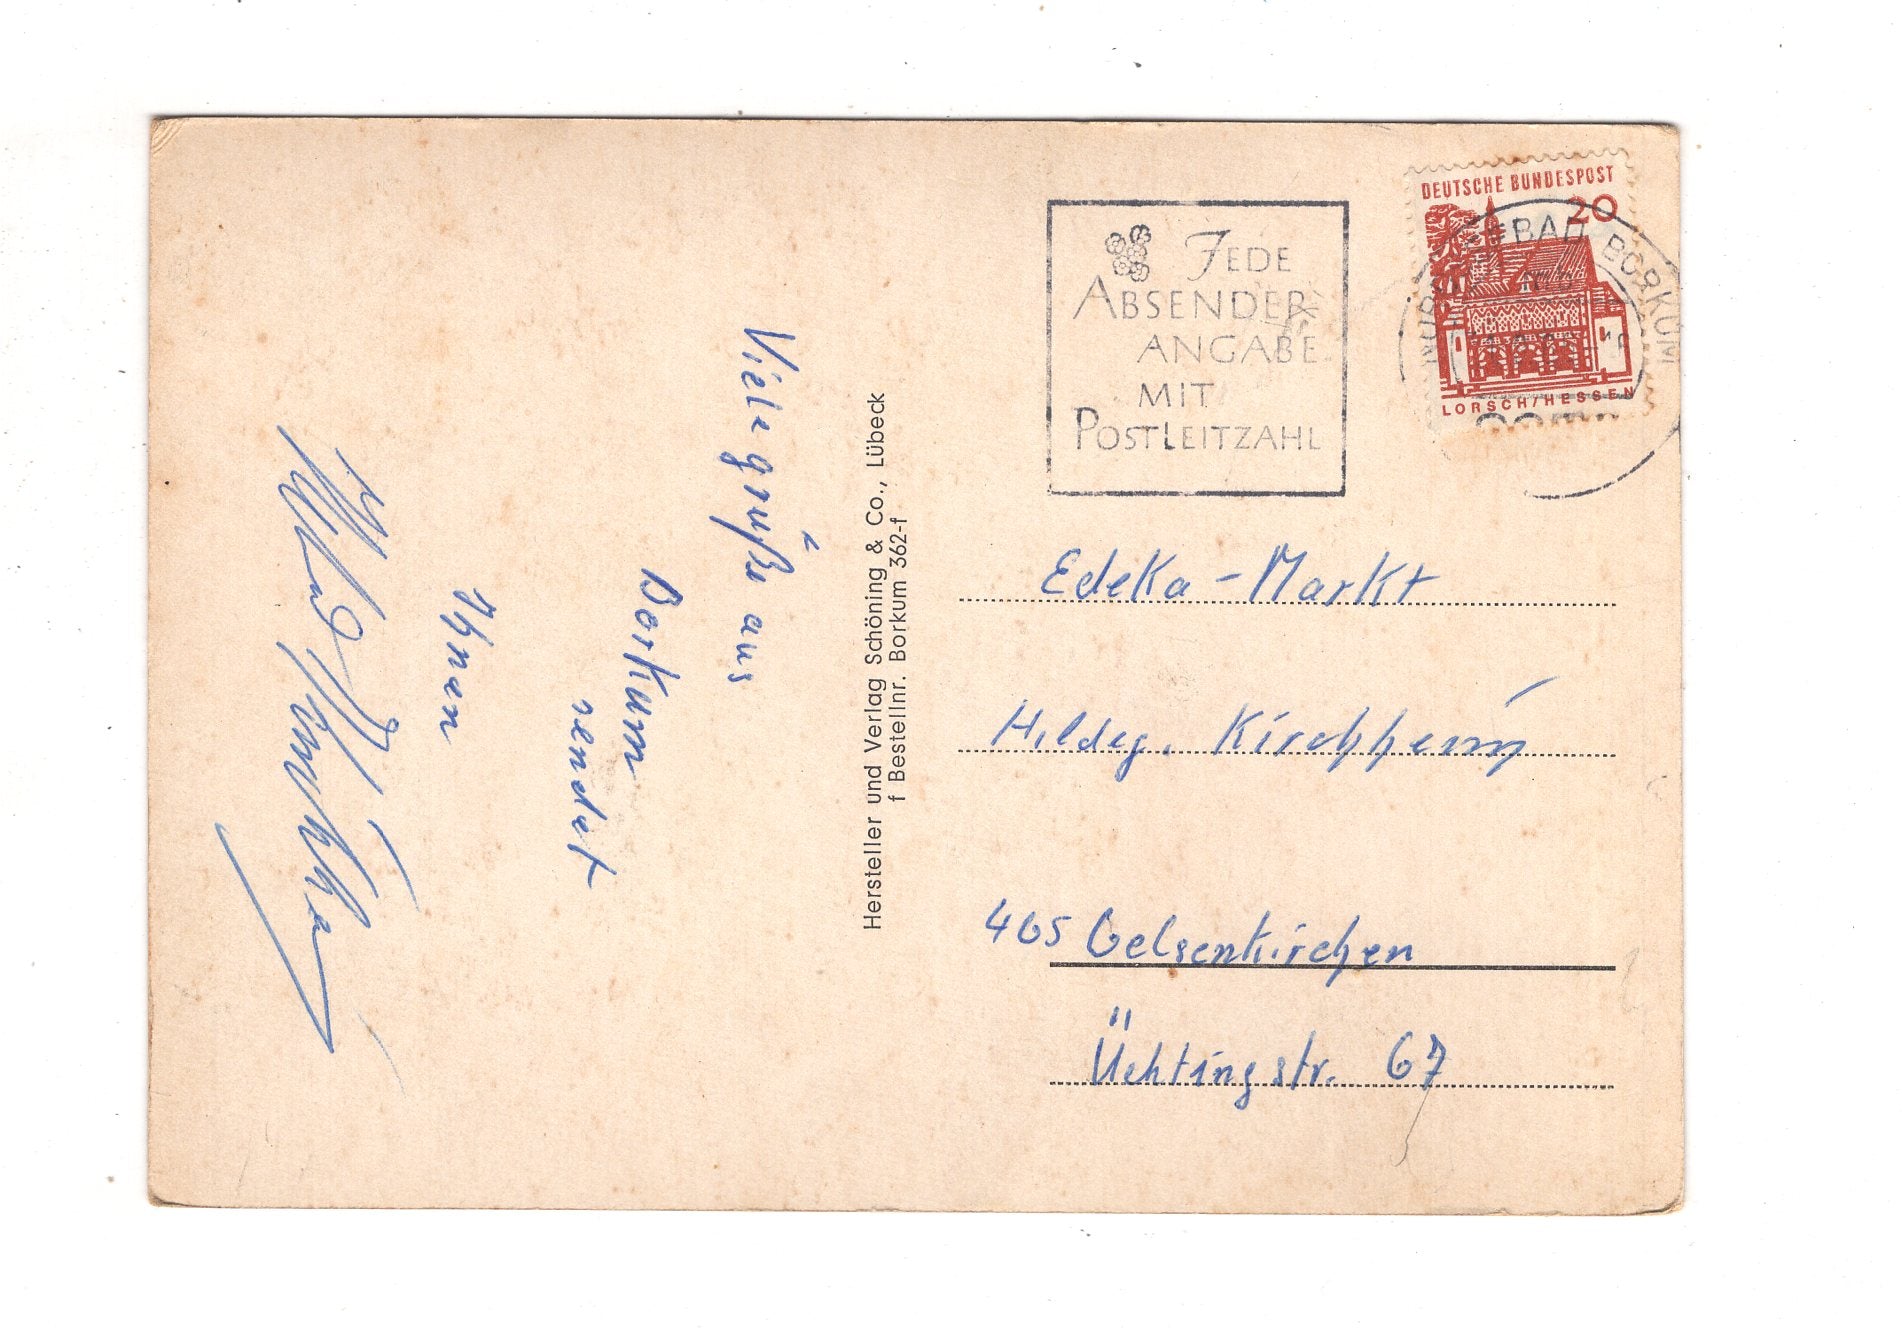 Viele grüße aus
Borkum
sendet
Ihnen
Hersteller und Verlag Schöning & Co., Lübeck
f Bestellnr. Borkum 362-f
JEDE
ABSENDER
ANGABE
MIT
POSTLEITZAHL
DEUTSCHE BUNDESPOST
20
LORSCH/HESSEN
BAD BORKUM
Edeka-Markt
Hildeg.
465 Gelsenkirchen
Üchtingstr. 67